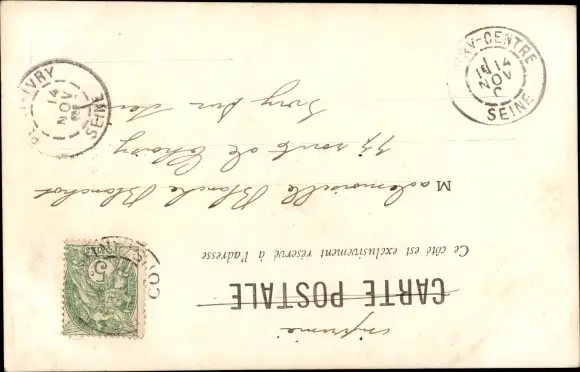 imprimé
CARTE POSTALE
Ce côté est exclusivement réservé à l'adresse
M ademoiselle Blanche Blanchot
77 route de Choisy
Ivry sur Seine
IVRY-CENTRE
14
NOV
SEINE
IVRY
14
NOV
SEINE
5